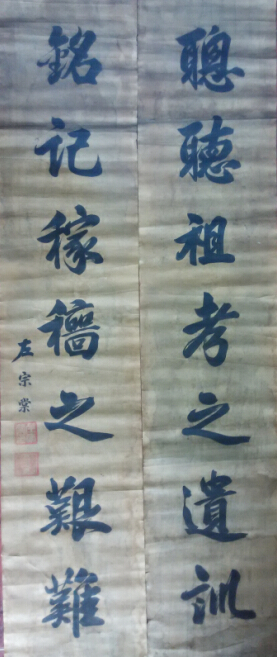 聰聽祖考之遺訓
銘记稼穡之艱難
左宗棠